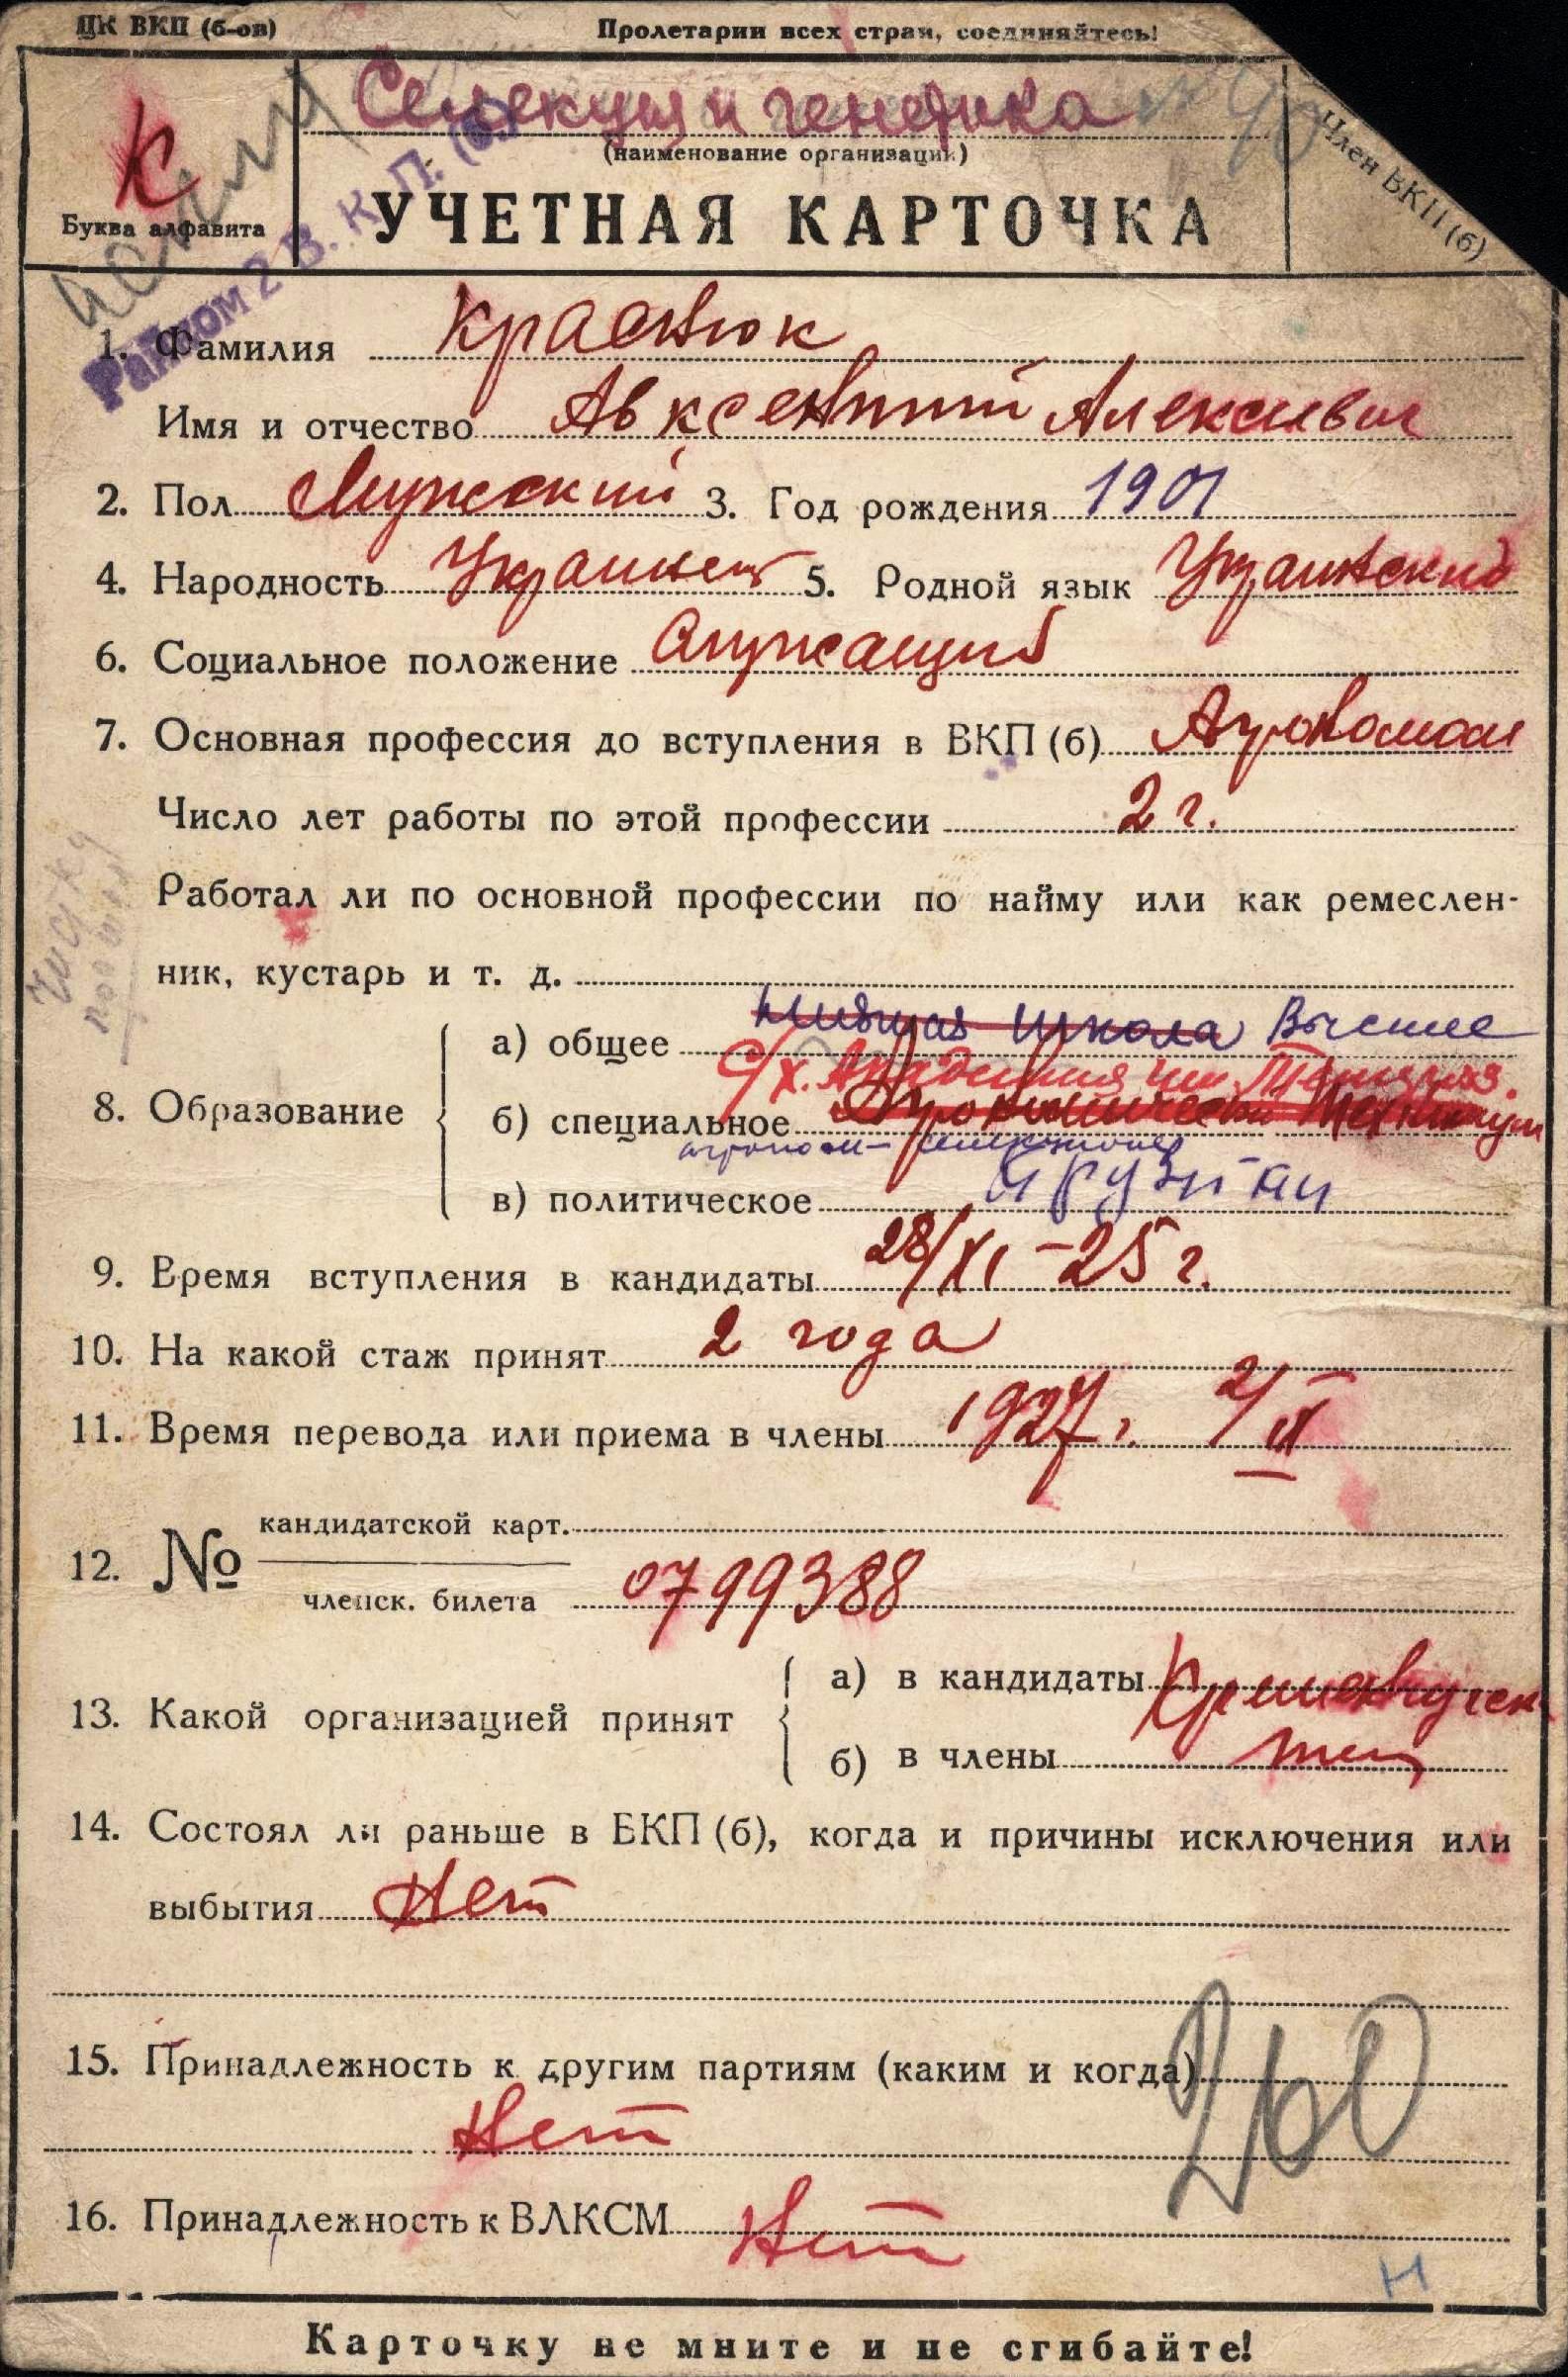 ЦК ВКП (б-ов)
Пролетарии всех стран, соединяйтесь!
К
Буква алфавита
Селекция и генетика
(наименование организации)
УЧЕТНАЯ КАРТОЧКА
Член ВКП(б)
Райком 2 В. К. П. (б)
1. Фамилия Краснюк
Имя и отчество Авксентий Алексеевич
2. Пол Мужской 3. Год рождения 1901
4. Народность Украинец 5. Родной язык Украинский
6. Социальное положение Служащий
7. Основная профессия до вступления в ВКП (б) Агрономом
Число лет работы по этой профессии 2 г.
Работал ли по основной профессии по найму или как ремеслен-
ник, кустарь и т. д.
Чистку
прошел
8. Образование
а) общее Низшая школа Высшее
С/х. Академия им. Тимиряз.
б) специальное Агрономический Техникум
агроном-селекционер
в) политическое
9. Время вступления в кандидаты 28/XI-25 г.
10. На какой стаж принят 2 года
11. Время перевода или приема в члены 1927 г.
12. № кандидатской карт.
членск. билета 0799388
13. Какой организацией принят
а) в кандидаты Кременчугск
б) в члены
14. Состоял ли раньше в ВКП (б), когда и причины исключения или
выбытия Нет
15. Принадлежность к другим партиям (каким и когда)
Нет
260
16. Принадлежность к ВЛКСМ Нет
Н
Карточку не мните и не сгибайте!